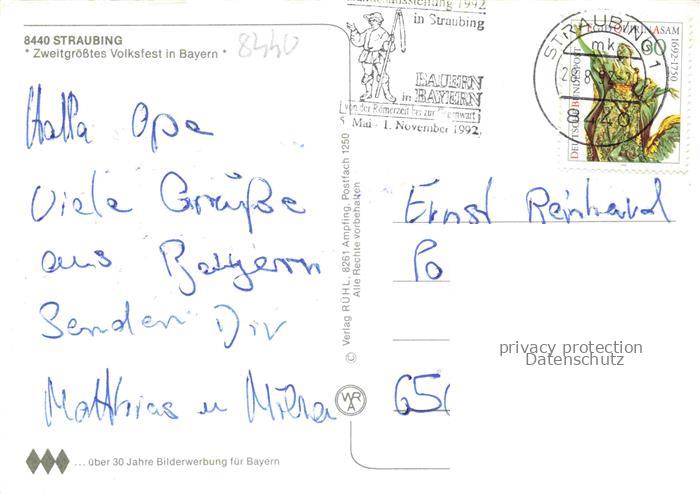 8440 STRAUBING
* Zweitgrößtes Volksfest in Bayern *
8440
Hallo Opa
Viele Grüße
aus Bayern
Senden Dir
Matthias u
... über 30 Jahre Bilderwerbung für Bayern
© Verlag RÜHL, 8261 Ampfing, Postfach 1250
Alle Rechte vorbehalten
1992
in Straubing
BAUERN
in BAYERN
von der Römerzeit bis zur Gegenwart
5. Mai - 1. November 1992
STRAUBING 1
mk
8440
DEUTSCHE BUNDESPOST
60
ASAM
1692-1750
Ernst Reinhard
Po
650
WRA
privacy protection
Datenschutz